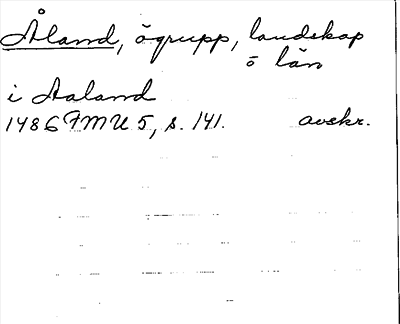 Åland, ögrupp, landskap
o län
i Aaland
1486 FMU 5, s. 141. avskr.